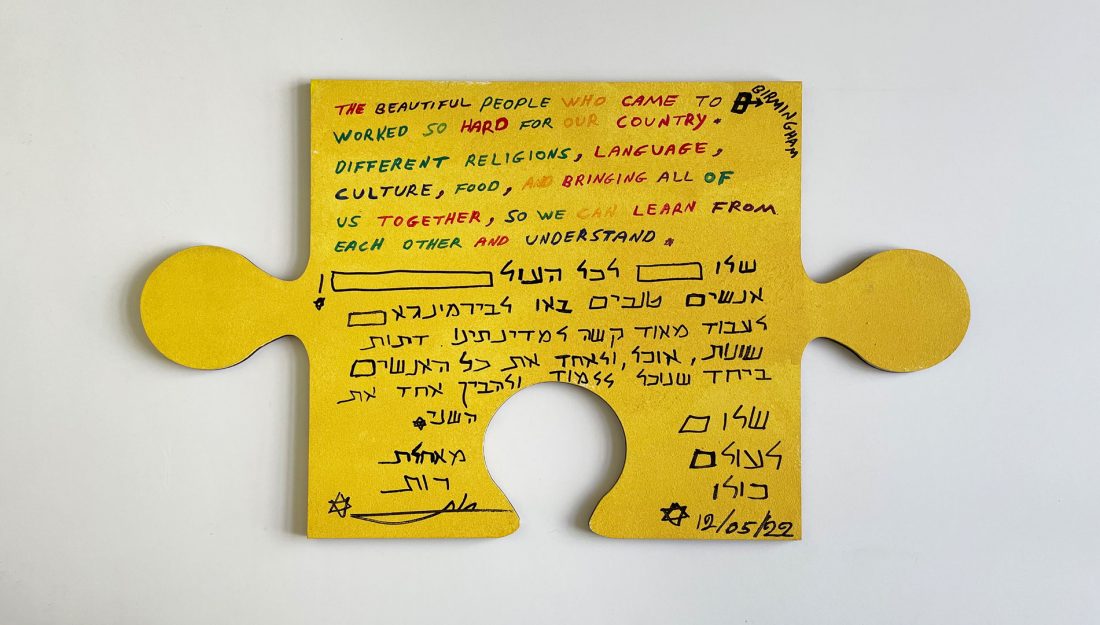 THE BEAUTIFUL PEOPLE WHO CAME TO BIRMINGHAM
WORKED SO HARD FOR OUR COUNTRY.
DIFFERENT RELIGIONS, LANGUAGE,
CULTURE, FOOD, AND BRINGING ALL OF
US TOGETHER, SO WE CAN LEARN FROM
EACH OTHER AND UNDERSTAND.
שלום לכל העולם!
אנשים טובים באו לבירמינגאם
לעבוד מאוד קשה למדינתינו. דתות
שונות, אוכל, ולאחד את כל האנשים
ביחד שנוכל ללמוד ולהבין אחד את
השני.
שלום
לעולם
כולו
12/05/22
מאחלת
רות